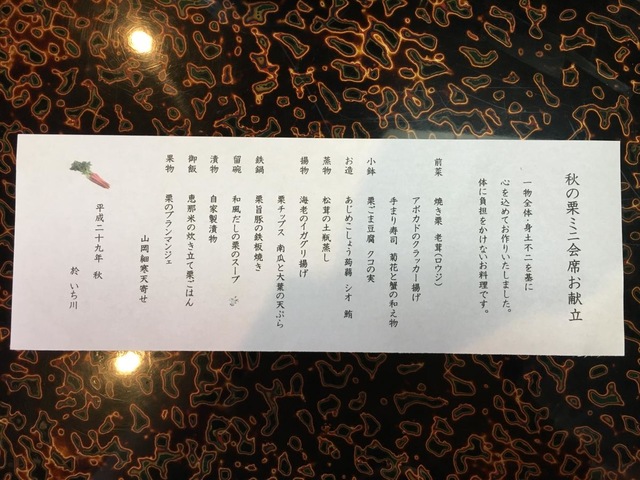 秋の栗ミニ会席お献立
一物全体・身土不二を基に
心を込めてお作りいたしました。
体に負担をかけないお料理です。
前菜 焼き栗 老茸(ロウジ)
アボカドのクラッカー揚げ
手まり寿司 菊花と蟹の和え物
小鉢 栗ごま豆腐 クコの実
お造 あじめこしょう蒟蒻 シオ 鮪
蒸物 松茸の土瓶蒸し
揚物 海老のイガグリ揚げ
栗チップス 南瓜と大葉の天ぷら
鉄鍋 栗旨豚の鉄板焼き
留碗 和風だしの栗のスープ
漬物 自家製漬物
御飯 恵那米の炊き立て栗ごはん
果物 栗のブランマンジェ
山岡細寒天寄せ
平成二十九年 秋
於 いち川